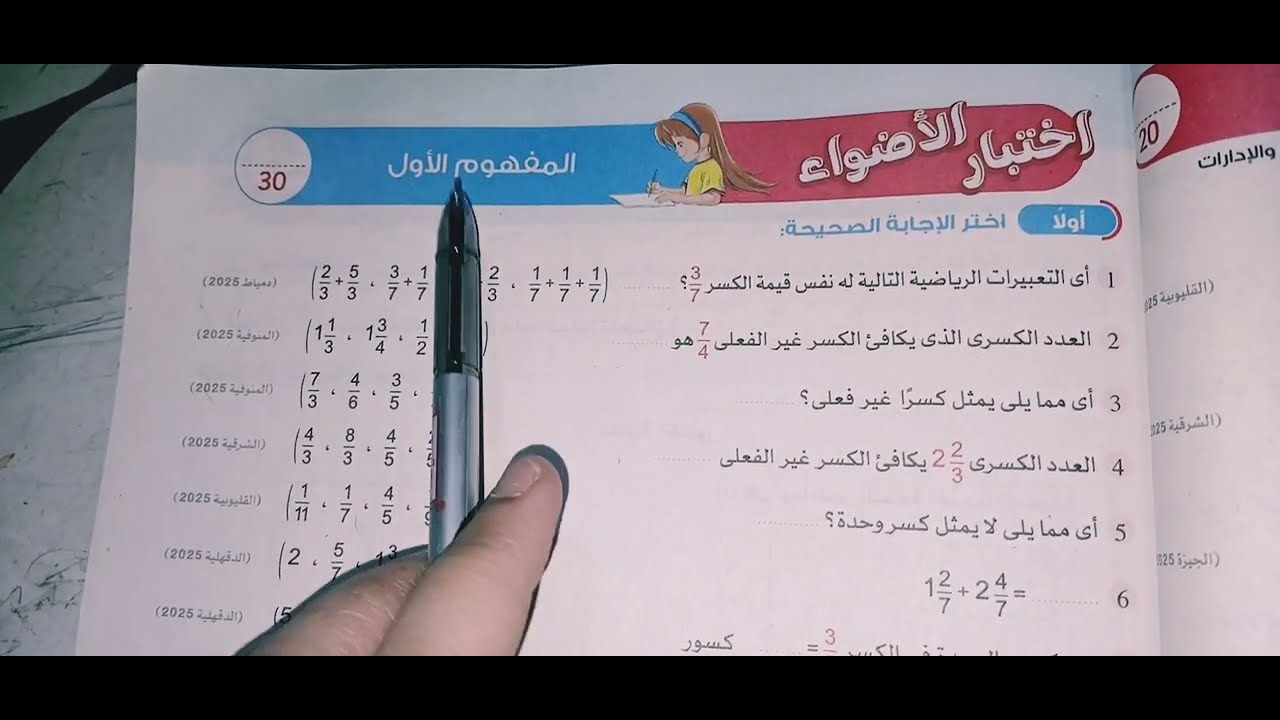 اختبار الأضواء
المفهوم الأول
30
20
والإدارات
أولًا اختر الإجابة الصحيحة:
1 أى التعبيرات الرياضية التالية له نفس قيمة الكسر 3/7؟ .......... (1/7 + 1/7 + 1/7 ، 2/3 ، 3/7 + 1/7 ، 2/3 + 5/3) (دمياط 2025)
2 العدد الكسرى الذى يكافئ الكسر غير الفعلى 7/4 هو .......... (1/2 ، 1 3/4 ، 1 1/3) (المنوفية 2025)
3 أى مما يلى يمثل كسرًا غير فعلى؟ .......... (3/5 ، 4/6 ، 7/3) (المنوفية 2025)
4 العدد الكسرى 2 2/3 يكافئ الكسر غير الفعلى .......... (4/5 ، 8/3 ، 4/3) (الشرقية 2025)
5 أى مما يلى لا يمثل كسر وحدة؟ .......... (4/5 ، 1/7 ، 1/11) (القليوبية 2025)
6 1 2/7 + 2 4/7 = .......... (5/7 ، 2) (الدقهلية 2025)
الكسر 3 = ...... كسور (5 (الدقهلية 2025)
(القليوبية 2025
(الشرقية 2025
(الجيزة 2025